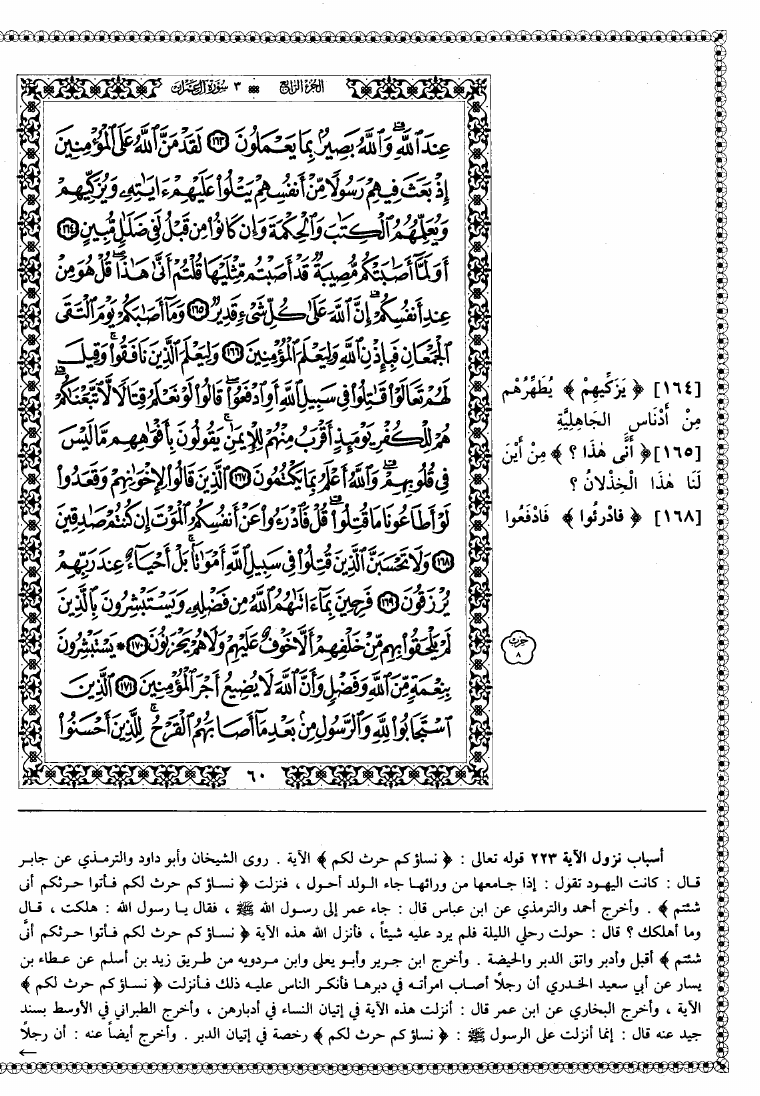 الجزء الرابع ٣ سورة آل عمران
عِندَ ٱللَّهِۗ وَٱللَّهُ بَصِيرُۢ بِمَا يَعۡمَلُونَ ١٦٣ لَقَدۡ مَنَّ ٱللَّهُ عَلَى ٱلۡمُؤۡمِنِينَ
إِذۡ بَعَثَ فِيهِمۡ رَسُولٗا مِّنۡ أَنفُسِهِمۡ يَتۡلُواْ عَلَيۡهِمۡ ءَايَٰتِهِۦ وَيُزَكِّيهِمۡ
وَيُعَلِّمُهُمُ ٱلۡكِتَٰبَ وَٱلۡحِكۡمَةَ وَإِن كَانُواْ مِن قَبۡلُ لَفِي ضَلَٰلٖ مُّبِينٍ ١٦٤
أَوَلَمَّآ أَصَٰبَتۡكُم مُّصِيبَةٞ قَدۡ أَصَبۡتُم مِّثۡلَيۡهَا قُلۡتُمۡ أَنَّىٰ هَٰذَاۖ قُلۡ هُوَ مِنۡ
عِندِ أَنفُسِكُمۡۗ إِنَّ ٱللَّهَ عَلَىٰ كُلِّ شَيۡءٖ قَدِيرٞ ١٦٥ وَمَآ أَصَٰبَكُمۡ يَوۡمَ ٱلۡتَقَى
ٱلۡجَمۡعَانِ فَبِإِذۡنِ ٱللَّهِ وَلِيَعۡلَمَ ٱلۡمُؤۡمِنِينَ ١٦٦ وَلِيَعۡلَمَ ٱلَّذِينَ نَافَقُواْۚ وَقِيلَ
لَهُمۡ تَعَالَوۡاْ قَٰتِلُواْ فِي سَبِيلِ ٱللَّهِ أَوِ ٱدۡفَعُواْۖ قَالُواْ لَوۡ نَعۡلَمُ قِتَالٗا لَّٱتَّبَعۡنَٰكُمۡۗ
هُمۡ لِلۡكُفۡرِ يَوۡمَئِذٍ أَقۡرَبُ مِنۡهُمۡ لِلۡإِيمَٰنِۚ يَقُولُونَ بِأَفۡوَٰهِهِم مَّا لَيۡسَ
فِي قُلُوبِهِمۡۚ وَٱللَّهُ أَعۡلَمُ بِمَا يَكۡتُمُونَ ١٦٧ ٱلَّذِينَ قَالُواْ لِإِخۡوَٰنِهِمۡ وَقَعَدُواْ
لَوۡ أَطَاعُونَا مَا قُتِلُواْۗ قُلۡ فَٱدۡرَءُواْ عَنۡ أَنفُسِكُمُ ٱلۡمَوۡتَ إِن كُنتُمۡ صَٰدِقِينَ
١٦٨ وَلَا تَحۡسَبَنَّ ٱلَّذِينَ قُتِلُواْ فِي سَبِيلِ ٱللَّهِ أَمۡوَٰتَۢاۚ بَلۡ أَحۡيَآءٌ عِندَ رَبِّهِمۡ
يُرۡزَقُونَ ١٦٩ فَرِحِينَ بِمَآ ءَاتَىٰهُمُ ٱللَّهُ مِن فَضۡلِهِۦ وَيَسۡتَبۡشِرُونَ بِٱلَّذِينَ
لَمۡ يَلۡحَقُواْ بِهِم مِّنۡ خَلۡفِهِمۡ أَلَّا خَوۡفٌ عَلَيۡهِمۡ وَلَا هُمۡ يَحۡزَنُونَ ١٧٠ * يَسۡتَبۡشِرُونَ
بِنِعۡمَةٖ مِّنَ ٱللَّهِ وَفَضۡلٖ وَأَنَّ ٱللَّهَ لَا يُضِيعُ أَجۡرَ ٱلۡمُؤۡمِنِينَ ١٧١ ٱلَّذِينَ
ٱسۡتَجَابُواْ لِلَّهِ وَٱلرَّسُولِ مِنۢ بَعۡدِ مَآ أَصَابَهُمُ ٱلۡقَرۡحُۚ لِلَّذِينَ أَحۡسَنُواْ
٦٠
[١٦٤] ﴿ يَزَكِّيهِمْ ﴾ يُطَهِّرُهُم
مِنْ أَدْنَاسِ الجَاهِلِيَّةِ
[١٦٥] ﴿ أَنَّى هٰذَا ؟ ﴾ مِنْ أَيْنَ
لَنَا هٰذَا الْخِذْلَانُ ؟
[١٦٨] ﴿ فادرئوا ﴾ فَادْفَعُوا
حزب
٨
أسباب نزول الآية ٢٢٣ قوله تعالى : ﴿ نساؤكم حرث لكم ﴾ الآية . روى الشيخان وأبو داود والترمذي عن جابر
قال : كانت اليهود تقول : إذا جامعها من ورائها جاء الولد أحول ، فنزلت ﴿ نساؤكم حرث لكم فأتوا حرثكم أنى
شئتم ﴾ . وأخرج أحمد والترمذي عن ابن عباس قال : جاء عمر إلى رسول الله ﷺ ، فقال يا رسول الله : هلكت ، قال
وما أهلكك ؟ قال : حولت رحلي الليلة فلم يرد عليه شيئاً ، فأنزل الله هذه الآية ﴿ نساؤكم حرث لكم فأتوا حرثكم أنَّى
شئتم ﴾ أقبل وأدبر واتق الدبر والحيضة . وأخرج ابن جرير وأبو يعلى وابن مردويه من طريق زيد بن أسلم عن عطاء بن
يسار عن أبي سعيد الخدري أن رجلًا أصاب امرأته في دبرها فأنكر الناس عليه ذلك فأنزلت ﴿ نساؤكم حرث لكم ﴾
الآية ، وأخرج البخاري عن ابن عمر قال : أنزلت هذه الآية في إتيان النساء في أدبارهن ، وأخرج الطبراني في الأوسط بسند
جيد عنه قال : إنما أنزلت على الرسول ﷺ : ﴿ نساؤكم حرث لكم ﴾ رخصة في إتيان الدبر . وأخرج أيضاً عنه : أن رجلًا
←